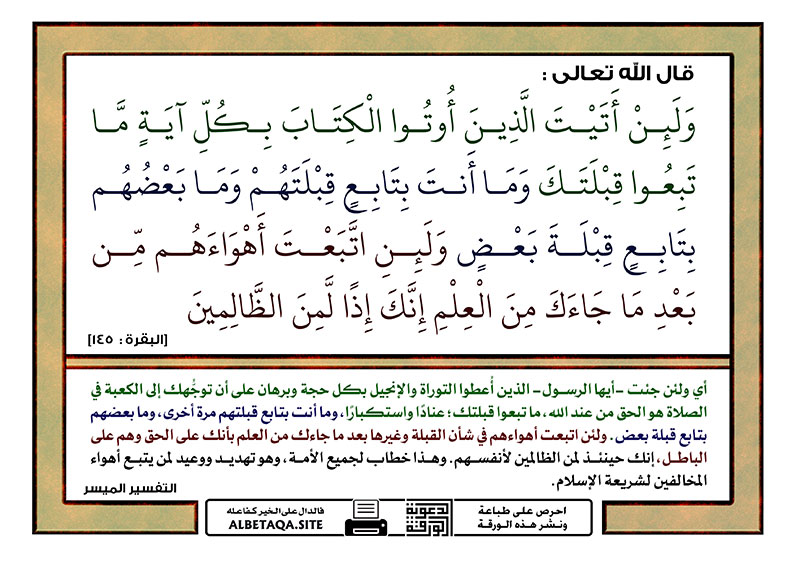 قال الله تعالى :
وَلَئِنْ أَتَيْتَ الَّذِينَ أُوتُوا الْكِتَابَ بِكُلِّ آيَةٍ مَّا
تَبِعُوا قِبْلَتَكَ وَمَا أَنتَ بِتَابِعٍ قِبْلَتَهُمْ وَمَا بَعْضُهُم
بِتَابِعٍ قِبْلَةَ بَعْضٍ وَلَئِنِ اتَّبَعْتَ أَهْوَاءَهُم مِّن
بَعْدِ مَا جَاءَكَ مِنَ الْعِلْمِ إِنَّكَ إِذًا لَّمِنَ الظَّالِمِينَ
[البقرة : ١٤٥]
أي ولئن جئت -أيها الرسول- الذين أُعطوا التوراة والإنجيل بكل حجة وبرهان على أن توجُّهك إلى الكعبة في
الصلاة هو الحق من عند الله، ما تبعوا قبلتك؛ عنادًا واستكبارًا، وما أنت بتابع قبلتهم مرة أخرى، وما بعضهم
بتابع قبلة بعض. ولئن اتبعت أهواءهم في شأن القبلة وغيرها بعد ما جاءك من العلم بأنك على الحق وهم على
الباطل، إنك حينئذ لمن الظالمين لأنفسهم. وهذا خطاب لجميع الأمة، وهو تهديد ووعيد لمن يتبع أهواء
المخالفين لشريعة الإسلام.
التفسير الميسر
احرص على طباعة
ونشر هذه الورقة
الدعوية
الورقة
فالدال على الخير كفاعله
ALBETAQA.SITE